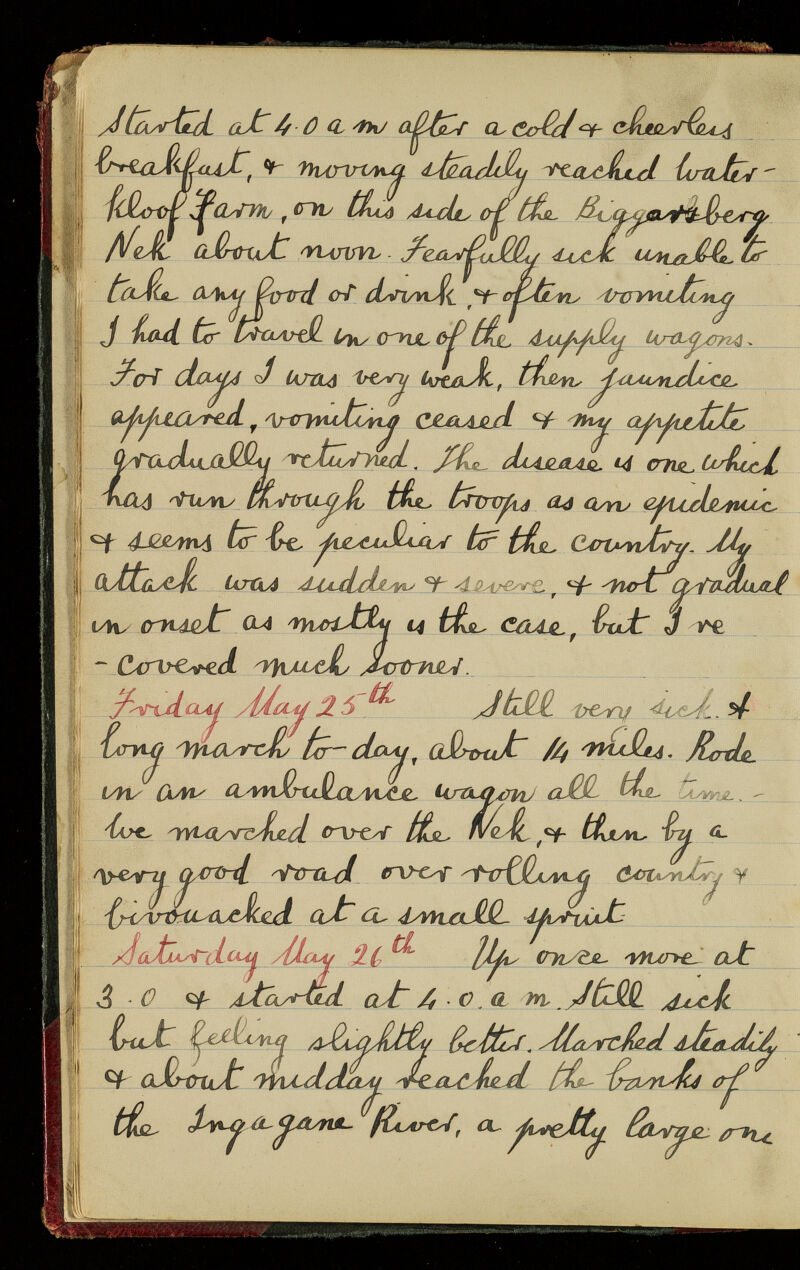 Started at 4.0 a m after a cold & cheerless
breakfast, & moving steadily reached Water-
kloof Farm, on this side of the Biggarsberg
Nek about noon. Fearfully sick unable to
take any food or drink, & often vomiting
I had to travel in one of the supply wagons.
For days I was very weak, then jaundice
appeared, vomiting ceased & my appetite
gradually returned. The disease is one which
has run through the troops as an epidemic
& seems to be peculiar to the country. My
attack was sudden & severe, & not gradual
in onset as mostly is the case, but I re
- covered much sooner.
Friday May 25th Still very sick. A
long march to-day, about 14 miles. Rode
in an ambulance wagon all the time. -
We marched over the Nek, & then by a
very good road over rolling country &
bivouacked at a small spruit
Saturday May 26th Up once more at
3.0 & started at 4.0. a m. Still sick
but feeling slightly better. Marched steadily
& about midday reached the banks of
the Ingagane River, a pretty large one